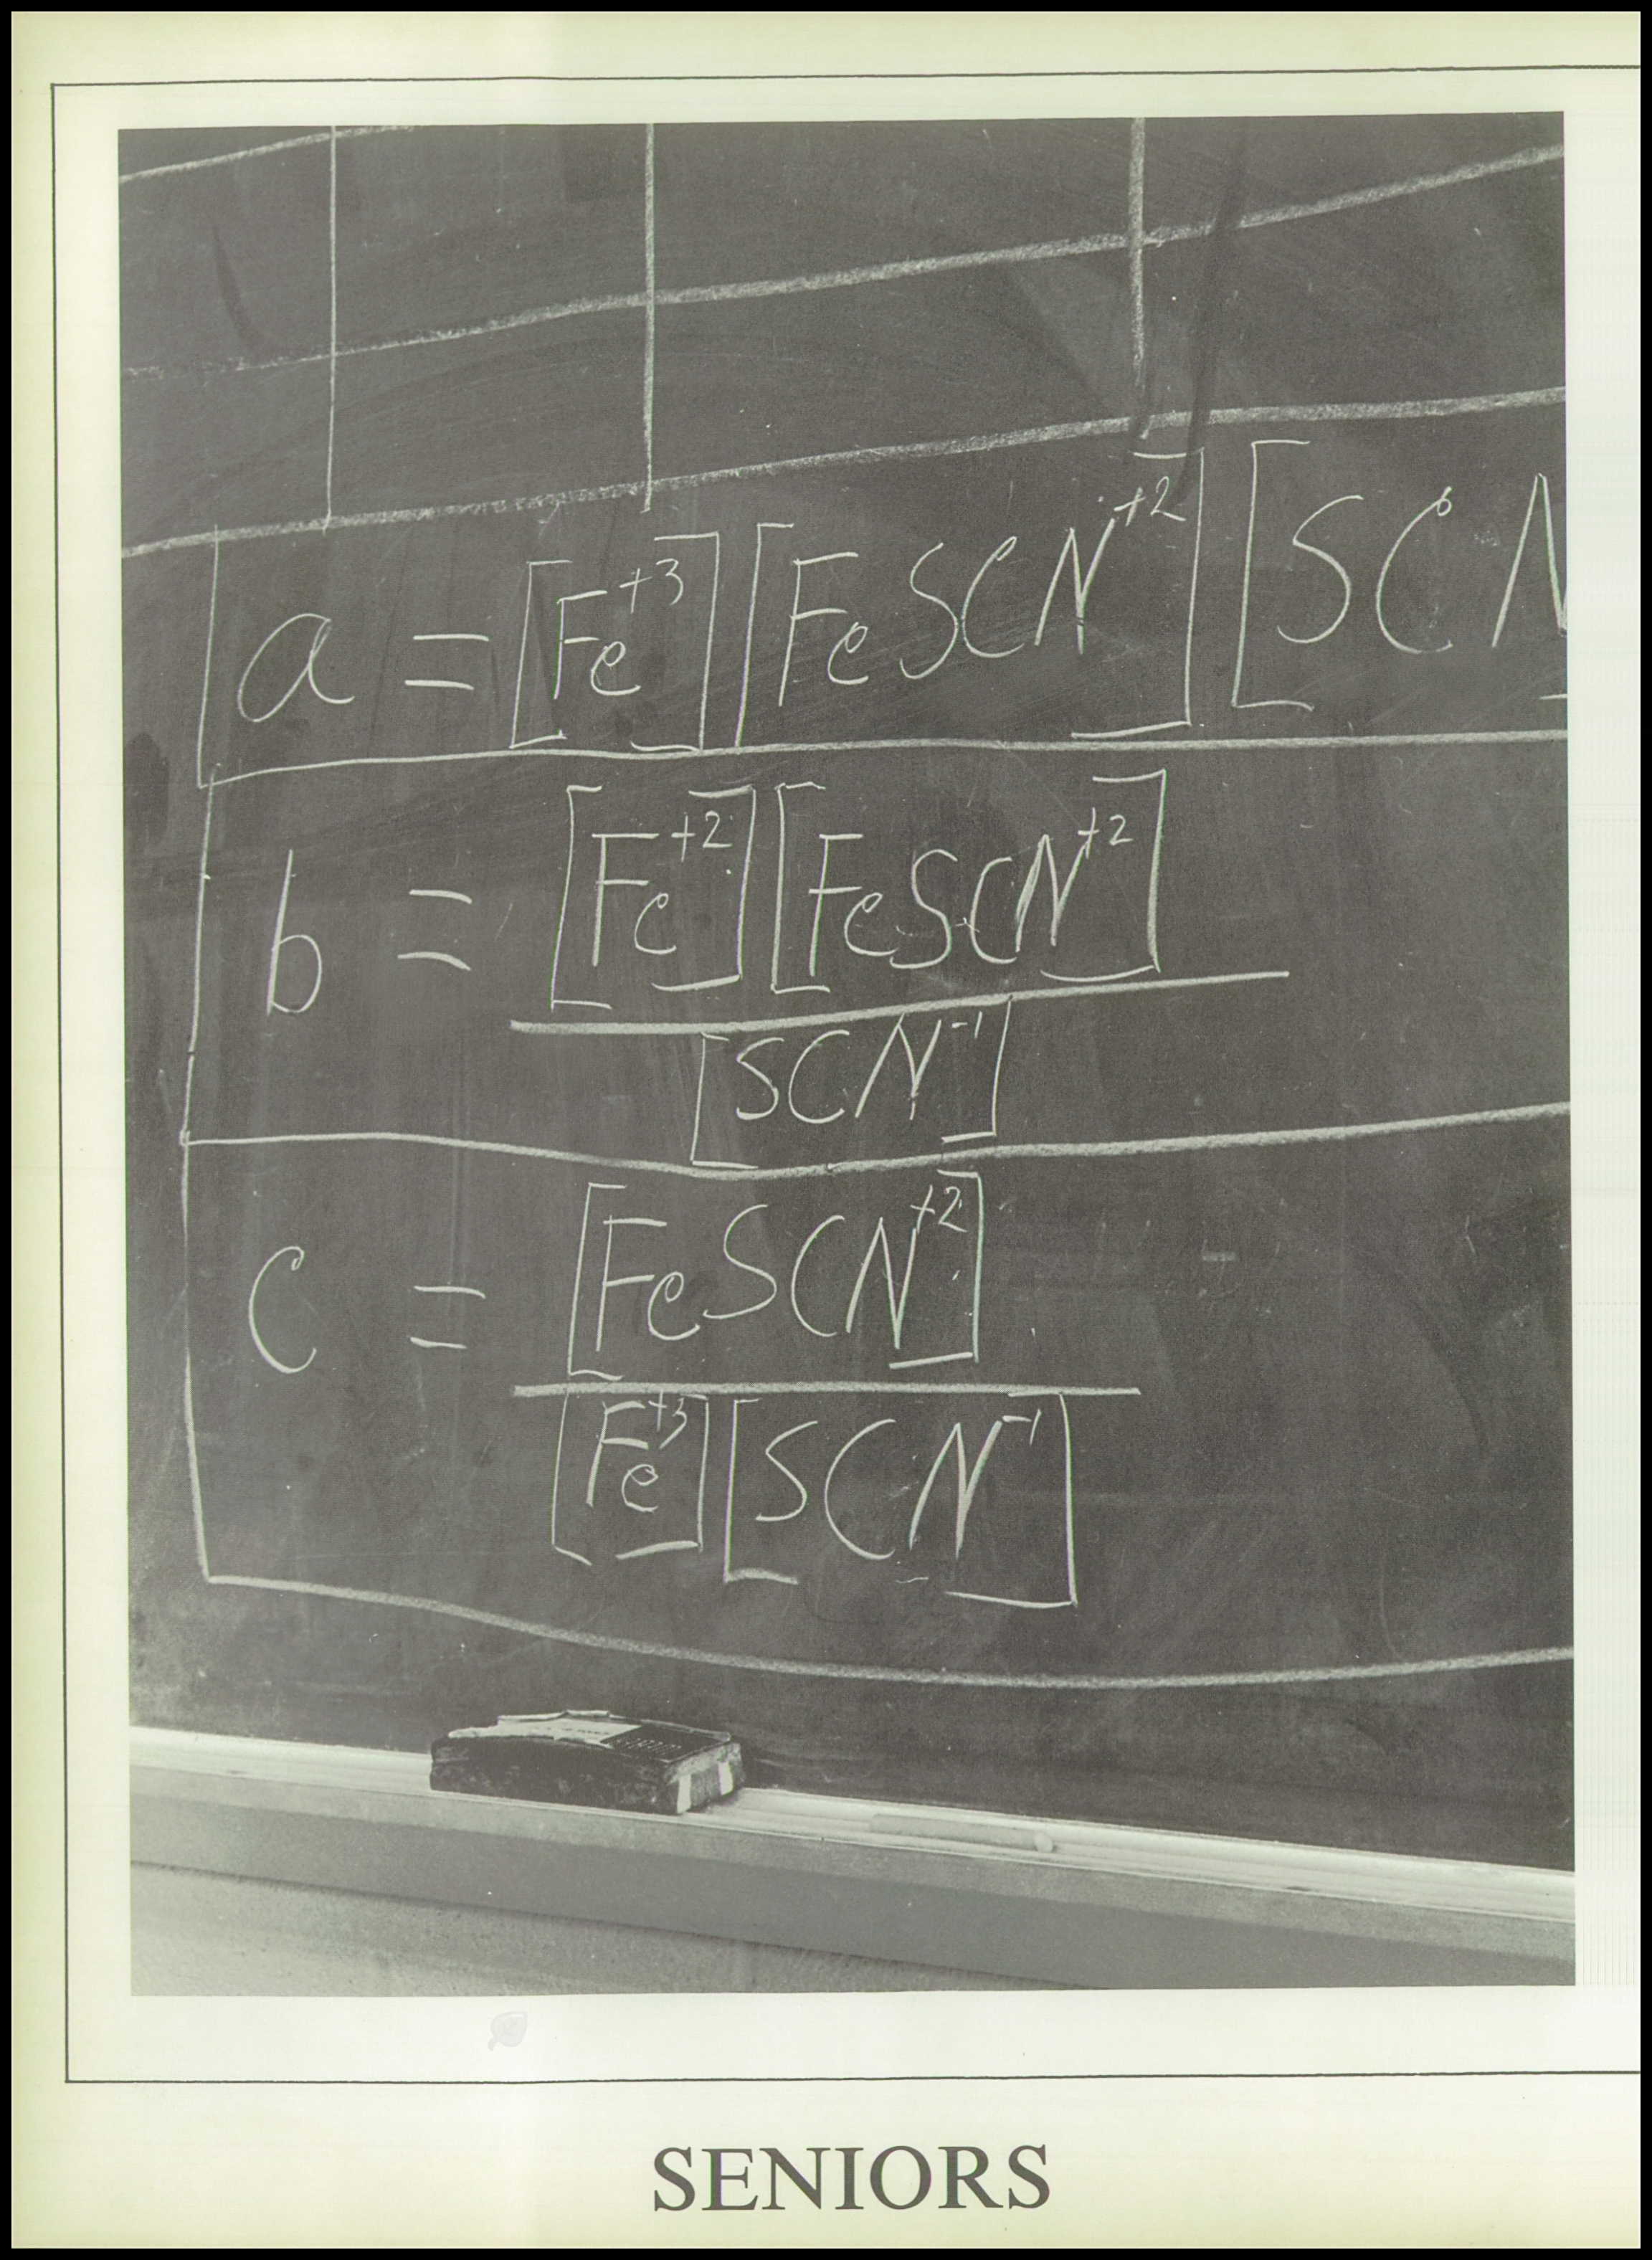 a = [Fe+3] [FeSCN+2] [SCN
b = [Fe+2] [FeSCN+2]
[SCN-1]
c = [FeSCN+2]
[Fe+3] [SCN-1]
SENIORS